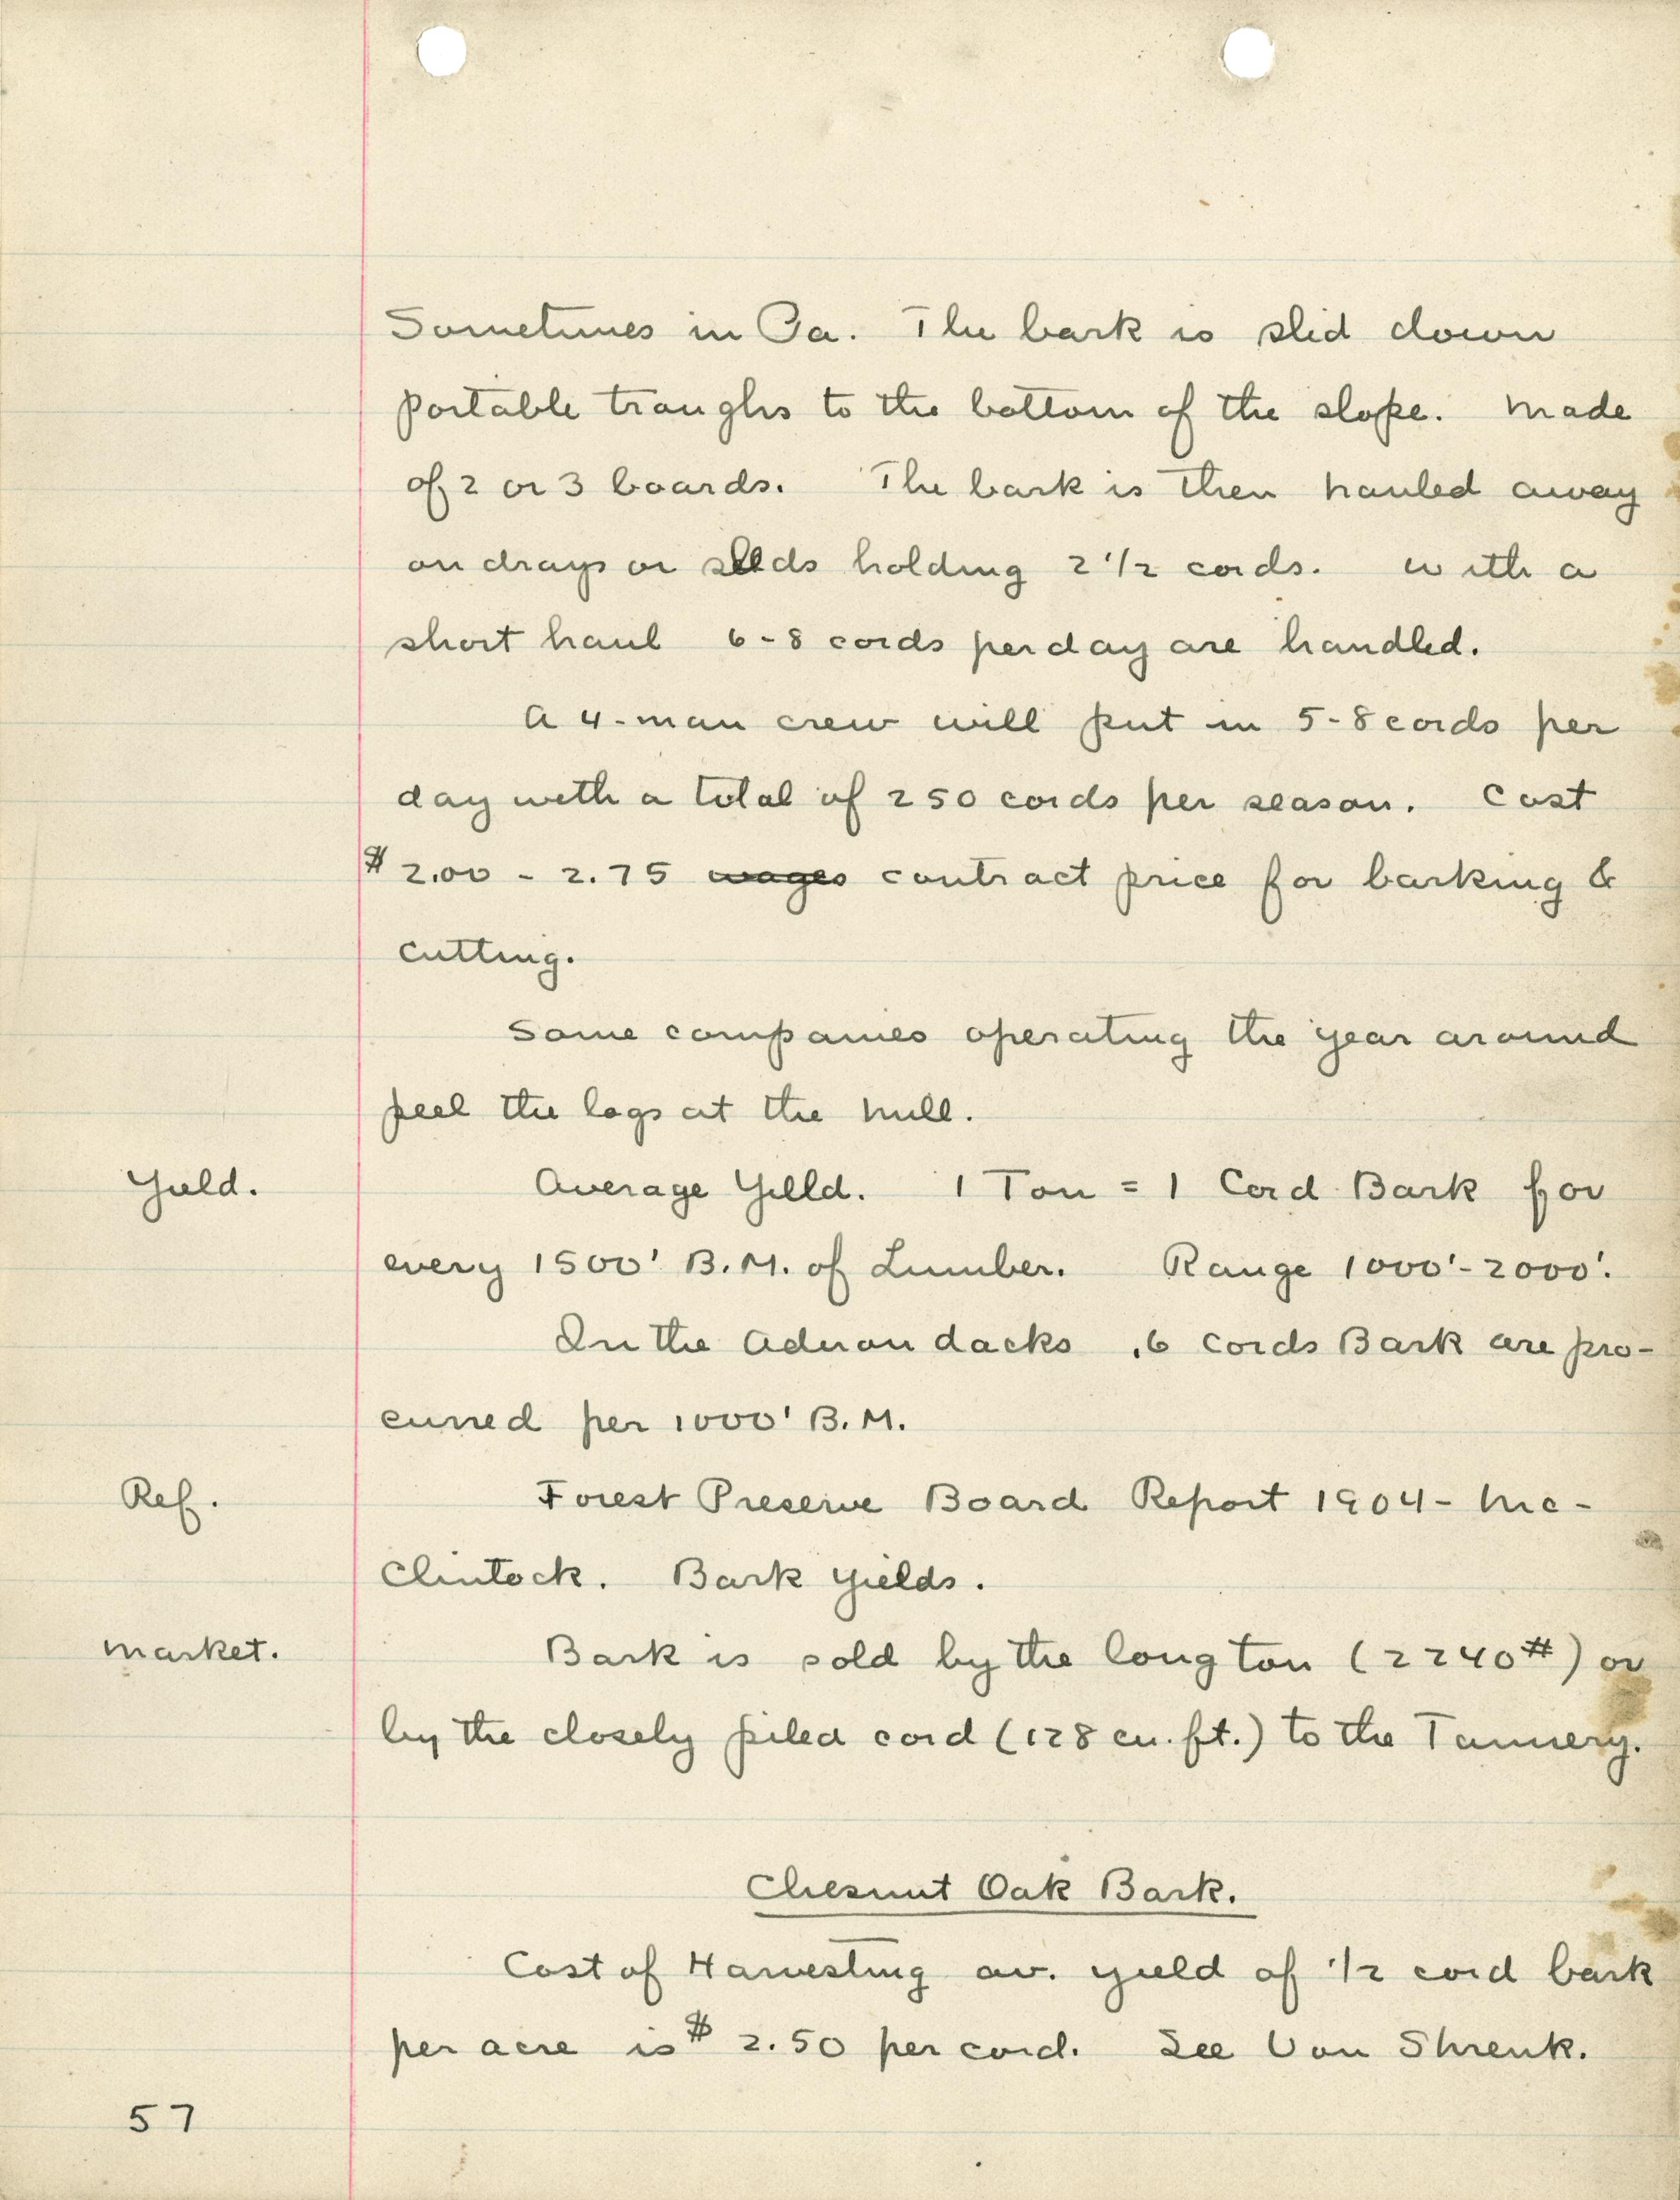 Sometimes in Pa. The bark is slid down
portable troughs to the bottom of the slope. Made
of 2 or 3 boards. The bark is then hauled away
on drays or sleds holding 2 1/2 cords. With a
short haul 6-8 cords per day are handled.
A 4-man crew will put in 5-8 cords per
day with a total of 250 cords per season. Cost
$2.00 - 2.75 wages contract price for barking &
cutting.
Some companies operating the year around
peel the logs at the mill.
Yield. Average Yield. 1 Ton = 1 Cord Bark for
every 1500' B.M. of Lumber. Range 1000'-2000'.
In the Adirondacks .6 cords Bark are pro-
cured per 1000' B.M.
Ref. Forest Preserve Board Report 1904 - Mc-
Clintock. Bark yields.
Market. Bark is sold by the long ton (2240#) or
by the closely piled cord (128 cu. ft.) to the Tannery.
Chesnut Oak Bark.
Cost of Harvesting av. yield of 1/2 cord bark
per acre is $2.50 per cord. See Von Shrenk.
57